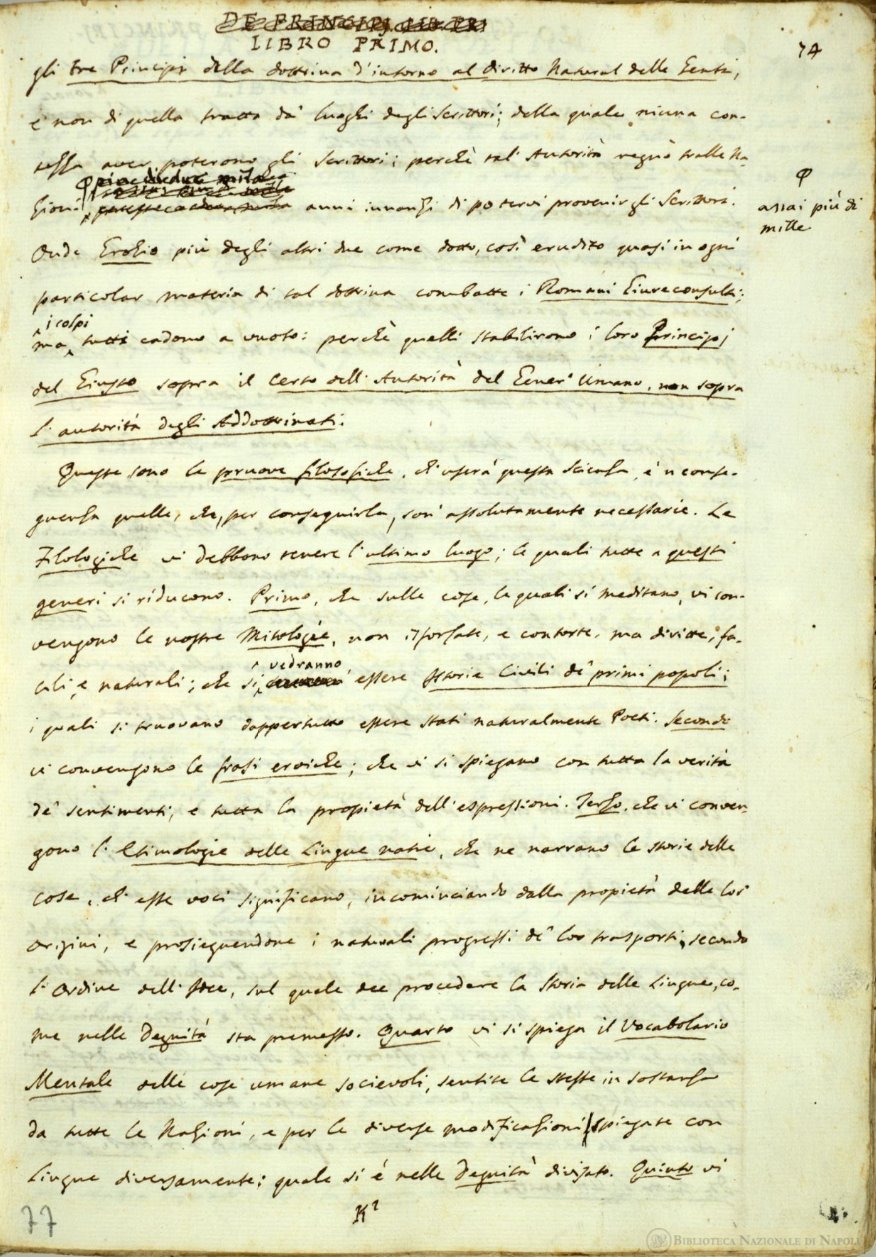 DE PRINCIPJ LIB. PRI
LIBRO PRIMO.
74
gli tre Principj della dottrina d'intorno al Diritto Natural delle Genti,
e non di quella tratta da' luoghi degli Scrittori; della quale niuna con-
tezza aver poterono gli Scrittori; perchè tal' Autorità regnò tralle Na-
più di due mila
zioni anni innanzi di potervi provenir gli Scrittori.
φ
assai più di
mille
Onde Grozio più degli altri due come dotto, così erudito quasi in ogni
particolar materia di tal dottrina combatte i Romani Giureconsulti;
i colpi
ma tutti cadono a vuoto: perchè quelli stabilirono i loro Principj
del Giusto sopra il Certo dell' Autorità del Gener' Umano, non sopra
l' autorità degli Addottrinati.
Queste sono le pruove filosofiche, ch' userà questa Scienza, e 'n conse-
guenza quelle, che, per conseguirla, son' assolutamente necessarie. Le
Filologiche vi debbono tenere l' ultimo luogo; le quali tutte a questi
generi si riducono. Primo, che sulle cose, le quali si meditano, vi con-
vengono le nostre Mitologie, non isforzate, e contorte, ma diritte, fa-
vedranno
cili, e naturali; che si essere Istorie Civili de' primi popoli;
i quali si truovano dappertutto essere stati naturalmente Poeti. Secondo
vi convengono le frasi eroiche; che vi si spiegano con tutta la verità
de' sentimenti, e tutta la propietà dell' espressioni. Terzo, che vi conven-
gono l' Etimologie delle Lingue natie, che ne narrano le storie delle
cose, ch' esse voci significano, incominciando dalla propietà delle lor'
origini, e prosieguendone i naturali progressi de' lor trasporti, secondo
l' Ordine dell' Idee, sul quale dee procedere la Storia delle Lingue, co-
me nelle Degnità sta premesso. Quarto vi si spiega il Vocabolario
Mentale delle cose umane socievoli, sentite le stesse in sostanza
da tutte le Nazioni, e per le diverse modificazioni spiegate con
Lingue diversamente; quale si è nelle Degnità divisato. Quinto vi
77
K2
BIBLIOTECA NAZIONALE DI NAPOLI